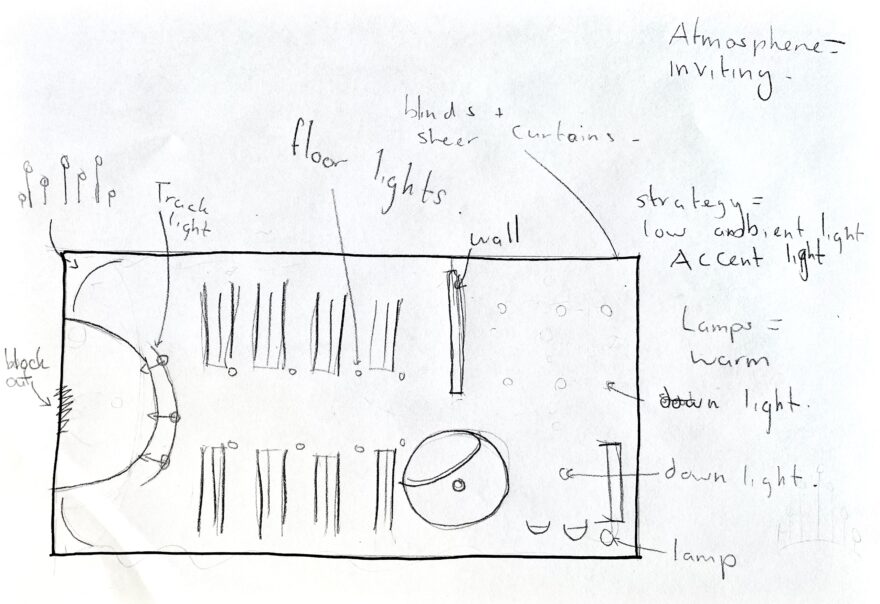 Atmosphere =
inviting -
blinds +
sheer curtains -
floor lights
Track
light
strategy =
low ambient light
Accent light
wall
Lamps =
warm
block
out
down light.
down light.
lamp